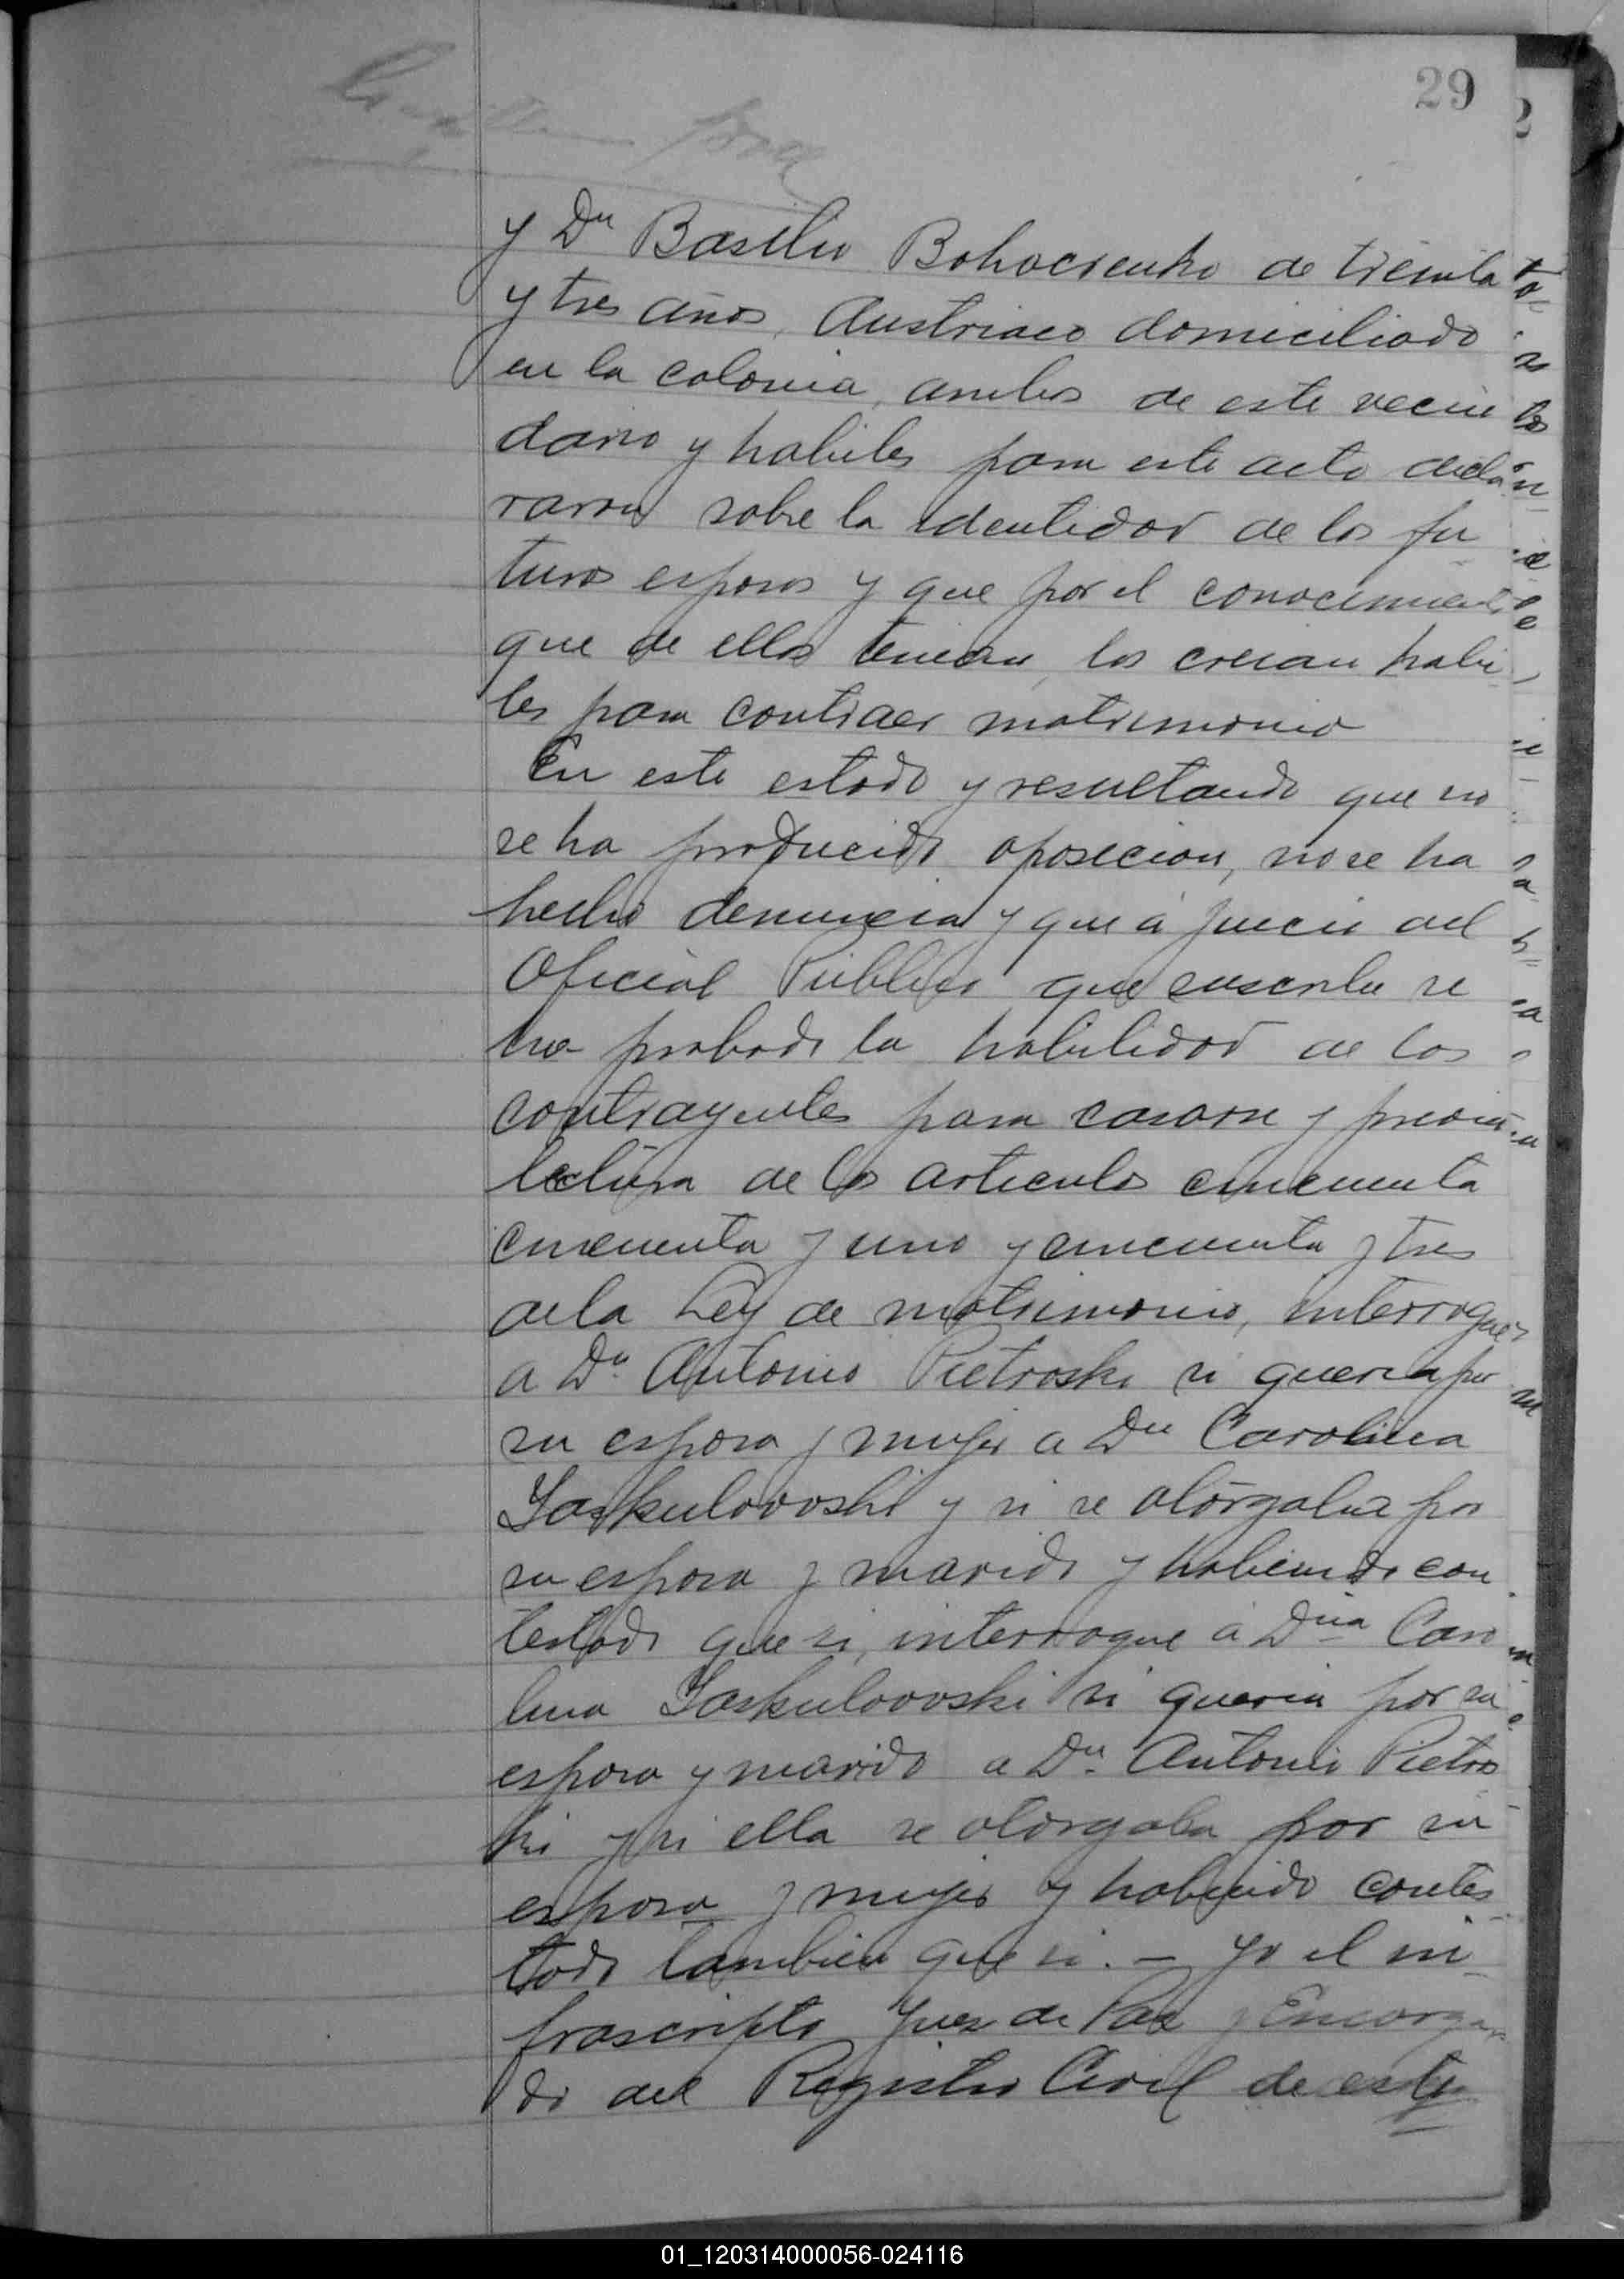 29
y Dn Basilio Bohoczenko de treinta
y tres años, Austriaco domiciliado
en la colonia, ambos de este vecin
dario y habiles para este acto decla
raron sobre la identidad de los fu
turos esposos y que por el conocimiento
que de ellos tenian, los creian habi
les para contraer matrimonio
En este estado y resultando que no
se ha producido oposicion, no se ha
hecho denuncia y que á juicio del
Oficial Publico que suscribe se
ha probado la habilidad de los
contrayentes para casarse y previa
lectura de los articulos cincuenta
cincuenta y uno y cincuenta y tres
de la Ley de matrimonio, interrogué
a Dn Antonio Pietroski si queria por
su esposa y mujer a Dna Carolina
Jaskulovoski y si se otorgaba por
su esposo y marido y habiendo con
testado que si, interrogue á Dña Caro
lina Jaskulovoski si queria por su
esposo y marido a Dn Antonio Pietros
ki y si ella se otorgaba por su
esposa y mujer y habiendo contes
tado tambien que si. – Yo el in
frascripto Juez de Paz y Encarga
do del Registro Civil de esta
01_120314000056-024116